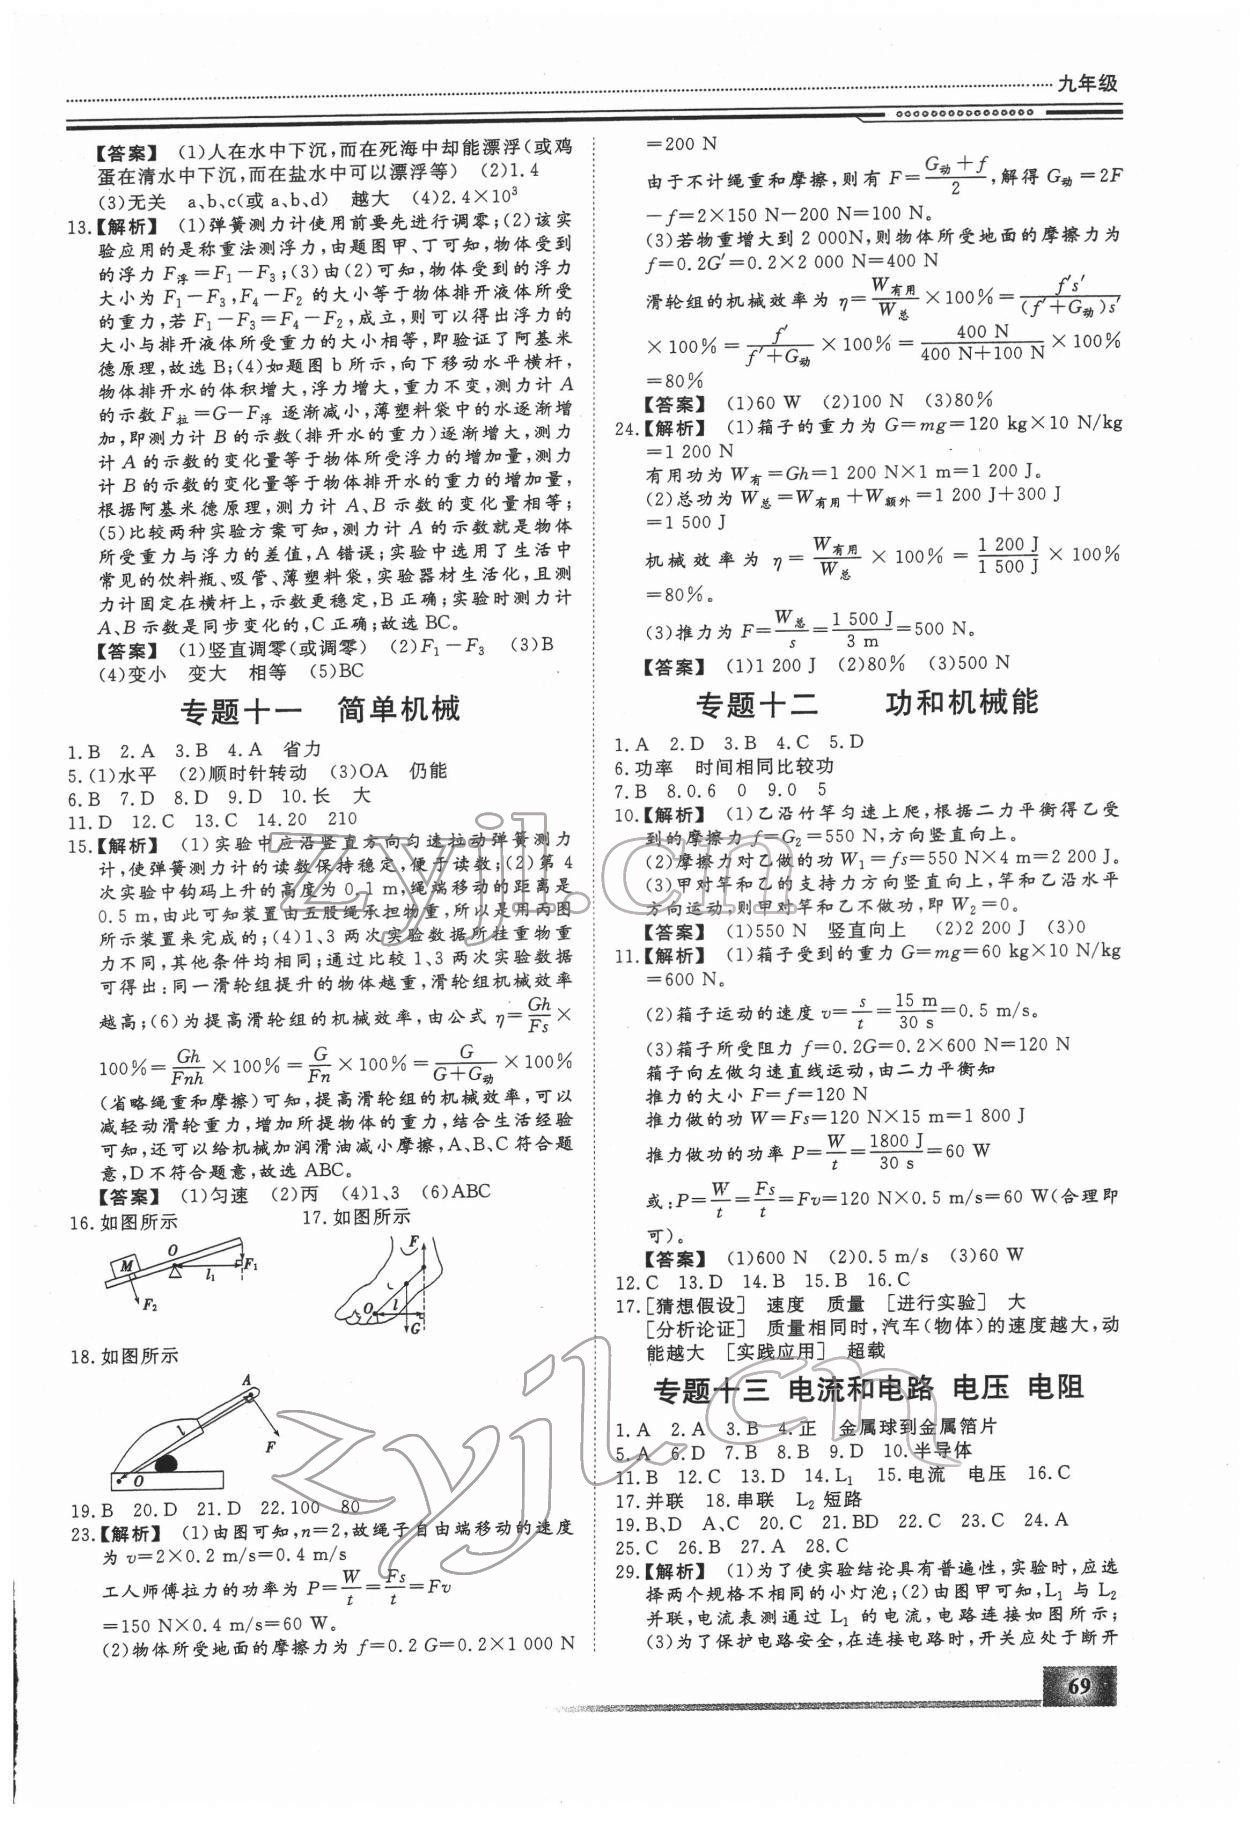 九年级
【答案】 (1)人在水中下沉,而在死海中却能漂浮(或鸡
蛋在清水中下沉,而在盐水中可以漂浮等) (2)1.4
(3)无关 a、b、c(或a、b、d) 越大 (4)2.4×10³
13.【解析】 (1)弹簧测力计使用前要先进行调零;(2)该实
验应用的是称重法测浮力,由题图甲、丁可知,物体受到
的浮力 F浮=F₁-F₃;(3)由(2)可知,物体受到的浮力
大小为 F₁-F₃,F₄-F₂ 的大小等于物体排开液体所受
的重力,若 F₁-F₃=F₄-F₂,成立,则可以得出浮力的
大小与排开液体所受重力的大小相等,即验证了阿基米
德原理,故选 B;(4)如题图 b 所示,向下移动水平横杆,
物体排开水的体积增大,浮力增大,重力不变,测力计 A
的示数 F拉=G-F浮 逐渐减小,薄塑料袋中的水逐渐增
加,即测力计 B 的示数(排开水的重力)逐渐增大,测力
计 A 的示数的变化量等于物体所受浮力的增加量,测力
计 B 的示数的变化量等于物体排开水的重力的增加量,
根据阿基米德原理,测力计 A、B 示数的变化量相等;
(5)比较两种实验方案可知,测力计 A 的示数就是物体
所受重力与浮力的差值,A 错误;实验中选用了生活中
常见的饮料瓶、吸管、薄塑料袋,实验器材生活化,且测
力计固定在横杆上,示数更稳定,B 正确;实验时测力计
A、B 示数是同步变化的,C 正确;故选 BC。
【答案】 (1)竖直调零(或调零) (2)F₁-F₃ (3)B
(4)变小 变大 相等 (5)BC
专题十一 简单机械
1.B 2.A 3.B 4.A 省力
5.(1)水平 (2)顺时针转动 (3)OA 仍能
6.B 7.D 8.D 9.D 10.长 大
11.D 12.C 13.C 14.20 210
15.【解析】 (1)实验中应沿竖直方向匀速拉动弹簧测力
计,使弹簧测力计的读数保持稳定,便于读数;(2)第 4
次实验中钩码上升的高度为 0.1 m,绳端移动的距离是
0.5 m,由此可知装置由五股绳承担物重,所以是用丙图
所示装置来完成的;(4)1、3 两次实验数据所挂重物重
力不同,其他条件均相同;通过比较 1、3 两次实验数据
可得出:同一滑轮组提升的物体越重,滑轮组机械效率
越高;(6)为提高滑轮组的机械效率,由公式 η=Gh/Fs×
100%=Gh/Fnh×100%=G/Fn×100%=G/(G+G动)×100%
(省略绳重和摩擦)可知,提高滑轮组的机械效率,可以
减轻动滑轮重力,增加所提物体的重力,结合生活经验
可知,还可以给机械加润滑油减小摩擦,A、B、C 符合题
意,D 不符合题意,故选 ABC。
【答案】 (1)匀速 (2)丙 (4)1、3 (6)ABC
16.如图所示 17.如图所示
M O l₁ F₁ F₂
F O l G
18.如图所示
A L F O
19.B 20.D 21.D 22.100 80
23.【解析】 (1)由图可知,n=2,故绳子自由端移动的速度
为 v=2×0.2 m/s=0.4 m/s
工人师傅拉力的功率为 P=W/t=Fs/t=Fv
=150 N×0.4 m/s=60 W。
(2)物体所受地面的摩擦力为 f=0.2 G=0.2×1 000 N
=200 N
由于不计绳重和摩擦,则有 F=(G动+f)/2,解得 G动=2F
-f=2×150 N-200 N=100 N。
(3)若物重增大到 2 000N,则物体所受地面的摩擦力为
f=0.2G′=0.2×2 000 N=400 N
滑轮组的机械效率为 η=W有用/W总×100%=f′s′/(f′+G动)s′
×100%=f′/(f′+G动)×100%=400 N/(400 N+100 N)×100%
=80%
【答案】 (1)60 W (2)100 N (3)80%
24.【解析】 (1)箱子的重力为 G=mg=120 kg×10 N/kg
=1 200 N
有用功为 W有=Gh=1 200 N×1 m=1 200 J。
(2)总功为 W总=W有用+W额外=1 200 J+300 J
=1 500 J
机械效率为 η=W有用/W总×100%=1 200 J/1 500 J×100%
=80%。
(3)推力为 F=W总/s=1 500 J/3 m=500 N。
【答案】 (1)1 200 J (2)80% (3)500 N
专题十二 功和机械能
1.A 2.D 3.B 4.C 5.D
6.功率 时间相同比较功
7.B 8.0.6 0 9.0 5
10.【解析】 (1)乙沿竹竿匀速上爬,根据二力平衡得乙受
到的摩擦力 f=G₂=550 N,方向竖直向上。
(2)摩擦力对乙做的功 W₁=fs=550 N×4 m=2 200 J。
(3)甲对竿和乙的支持力方向竖直向上,竿和乙沿水平
方向运动,则甲对竿和乙不做功,即 W₂=0。
【答案】 (1)550 N 竖直向上 (2)2 200 J (3)0
11.【解析】 (1)箱子受到的重力 G=mg=60 kg×10 N/kg
=600 N。
(2)箱子运动的速度 v=s/t=15 m/30 s=0.5 m/s。
(3)箱子所受阻力 f=0.2G=0.2×600 N=120 N
箱子向左做匀速直线运动,由二力平衡知
推力的大小 F=f=120 N
推力做的功 W=Fs=120 N×15 m=1 800 J
推力做功的功率 P=W/t=1800 J/30 s=60 W
或:P=W/t=Fs/t=Fv=120 N×0.5 m/s=60 W(合理即
可)。
【答案】 (1)600 N (2)0.5 m/s (3)60 W
12.C 13.D 14.B 15.B 16.C
17.[猜想假设] 速度 质量 [进行实验] 大
[分析论证] 质量相同时,汽车(物体)的速度越大,动
能越大 [实践应用] 超载
专题十三 电流和电路 电压 电阻
1.A 2.A 3.B 4.正 金属球到金属箔片
5.A 6.D 7.B 8.B 9.D 10.半导体
11.B 12.C 13.D 14.L₁ 15.电流 电压 16.C
17.并联 18.串联 L₂ 短路
19.B、D A、C 20.C 21.BD 22.C 23.C 24.A
25.C 26.B 27.A 28.C
29.【解析】 (1)为了使实验结论具有普遍性,实验时,应选
择两个规格不相同的小灯泡;(2)由图甲可知,L₁ 与 L₂
并联,电流表测通过 L₁ 的电流,电路连接如图所示;
(3)为了保护电路安全,在连接电路时,开关应处于断开
69
zyjl.cn
zyjl.cn